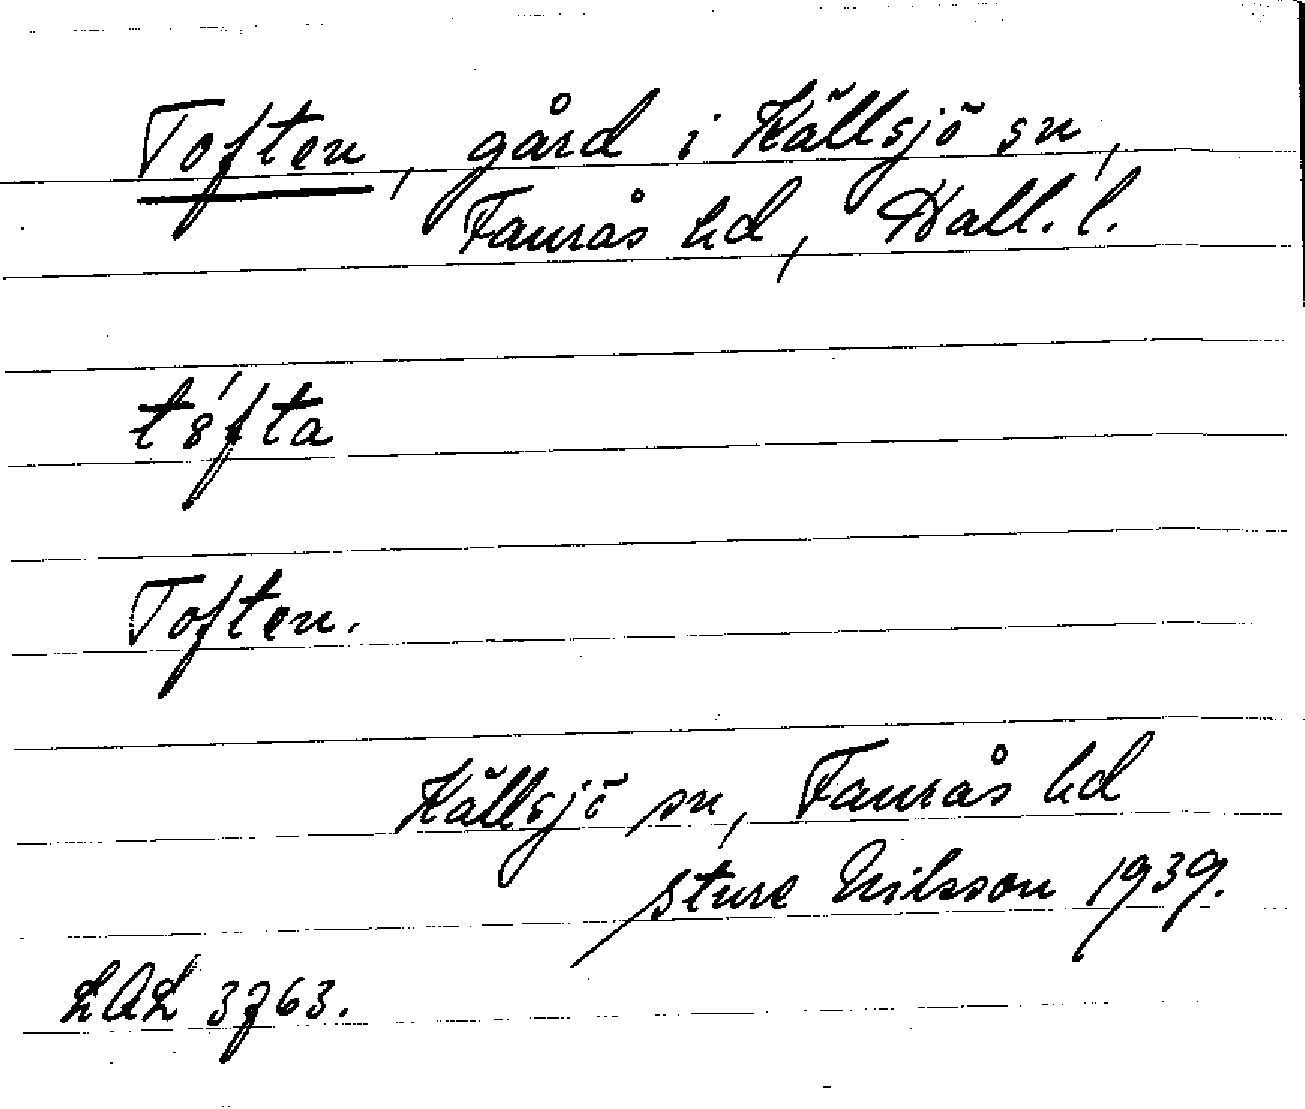 Toften, gård i Källsjö sn,
Faurås hd, Hall. l.
Toften.
Källsjö sn, Faurås hd
Sture Nilsson 1939.
LAL 3763.